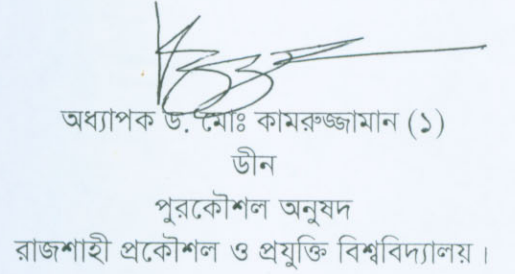 অধ্যাপক ড. মোঃ কামরুজ্জামান (১)
ডীন
পুরকৌশল অনুষদ
রাজশাহী প্রকৌশল ও প্রযুক্তি বিশ্ববিদ্যালয়।